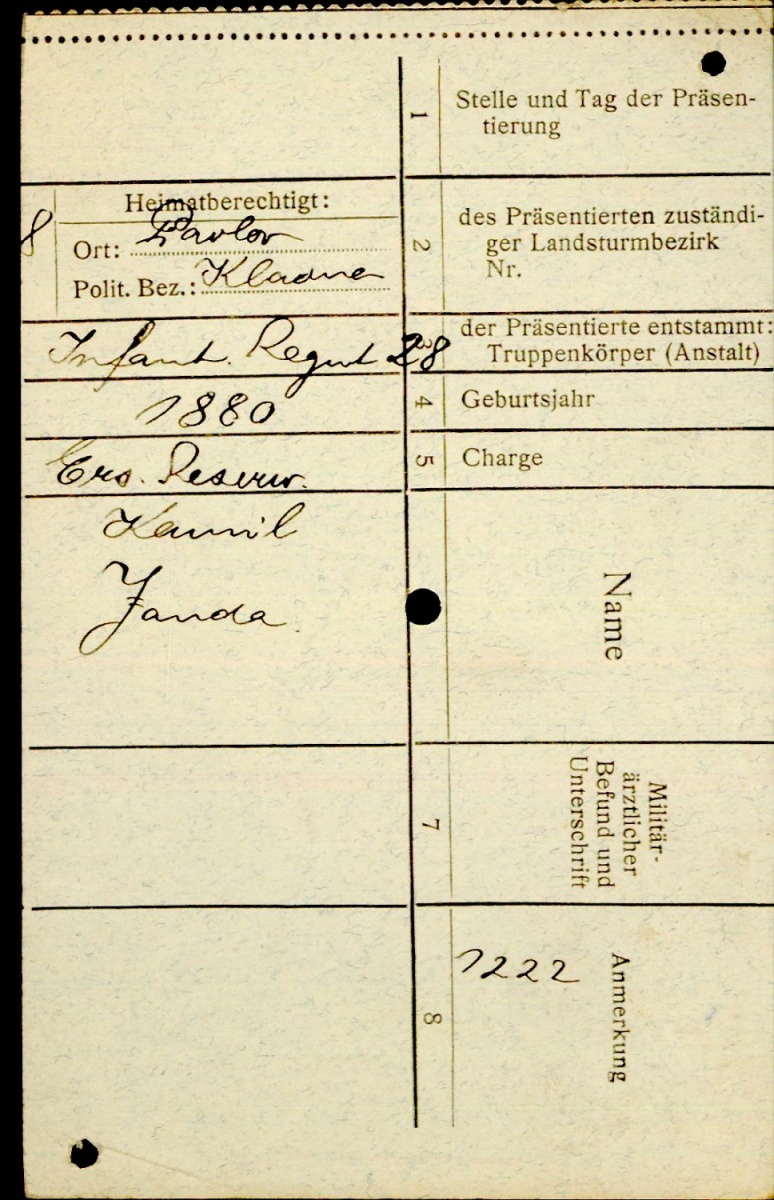 1
Stelle und Tag der Präsen-
tierung
8
Heimatberechtigt:
Ort: Pavlov
Polit. Bez.: Kladno
2
des Präsentierten zuständi-
ger Landsturmbezirk
Nr.
Infant. Regmt 28
3
der Präsentierte entstammt:
Truppenkörper (Anstalt)
1880
4
Geburtsjahr
Ers. Reserv.
5
Charge
Kamil
Janda
Name
7
Militär-
ärztlicher
Befund und
Unterschrift
8
1222
Anmerkung